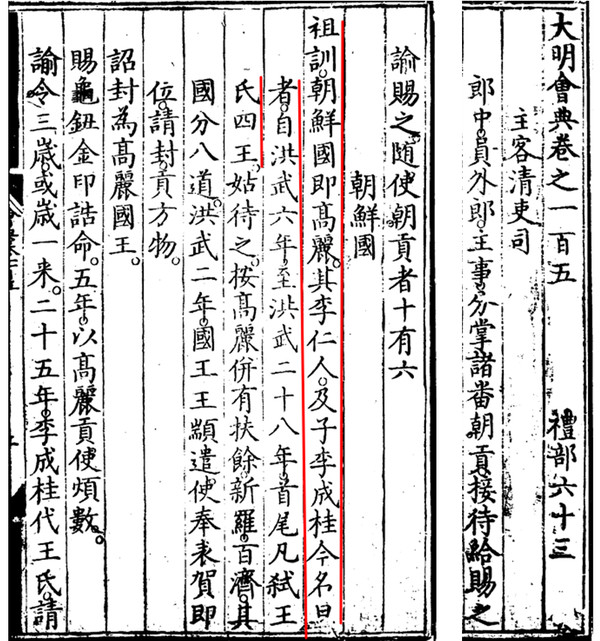 大明會典卷之一百五 禮部六十三
主客清吏司
郎中。員外郎。主事。分掌諸番朝貢接待給賜之
諭賜之隨使朝貢者十有六
朝鮮國
祖訓。朝鮮國即髙麗。其李仁人。及子李成桂今名旦
者。自洪武六年。至洪武二十八年。首尾凡弑王
氏四王。姑待之。按髙麗併有扶餘新羅。百濟。其
國分八道。洪武二年。國王王顓遣使奉表賀即
位。請封。貢方物。
詔封為髙麗國王。
賜龜鈕金印誥命。五年。以髙麗貢使煩數。
諭令三歲或歲一来。二十五年。李成桂代王氏。請